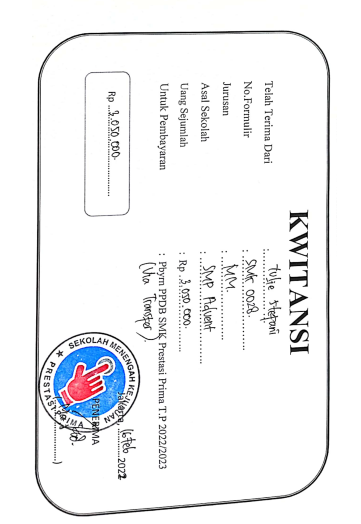 KWITANSI
Telah Terima Dari : Yulie Stefani
No.Formulir : SMK 0028.
Jurusan : MM.
Asal Sekolah : SMP Advent
Uang Sejumlah : Rp 3.050.000.
Untuk Pembayaran : Pbym PPDB SMK Prestasi Prima T.P 2022/2023
(Via Transfer)
Rp 3.050.000.
Jakarta, 16 Feb 2022
PENERIMA
SEKOLAH MENENGAH KEJURUAN
PRESTASI PRIMA